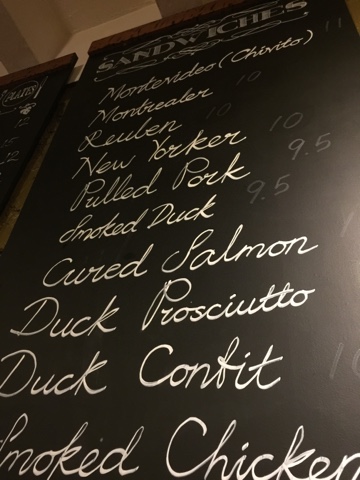 SANDWICHES
Montevideo (Chivito) 11
Montrealer 10
Reuben 10
New Yorker 10
Pulled Pork 9.5
Smoked Duck 9.5
Cured Salmon
Duck Prosciutto
Duck Confit
Smoked Chicken